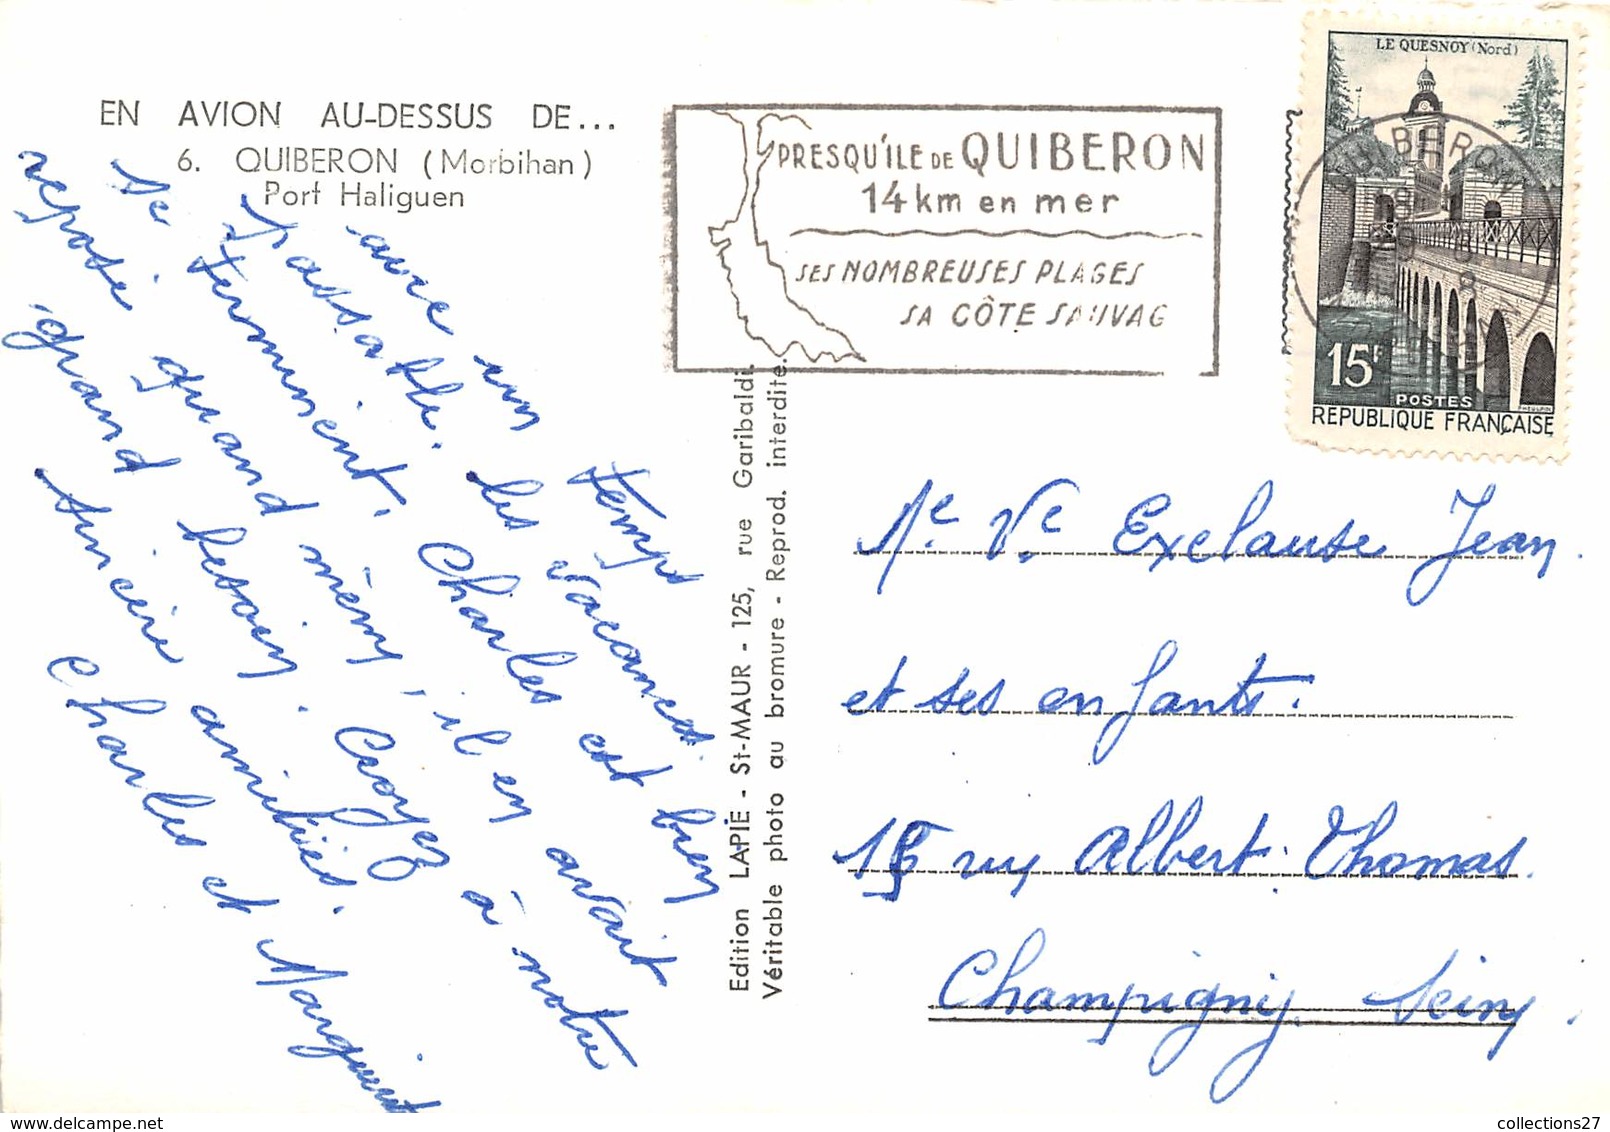 EN AVION AU-DESSUS DE...
6. QUIBERON (Morbihan)
Port Haliguen
PRESQU'ILE DE QUIBERON
14 km en mer
SES NOMBREUSES PLAGES
SA CÔTE SAUVAG
LE QUESNOY (Nord)
QUIBERON
15F
POSTES
REPUBLIQUE FRANÇAISE
avec un temps
passable. les vacances
se terminent, Charles est bien
reposé quand même, il en avait
grand besoin. Croyez à notre
sincère amitiés.
Charles et Marguerite
Edition LAPIE - St-MAUR - 125, rue Garibaldi.
Véritable photo au bromure - Reprod. interdite.
Me Ve Exclause Jean.
et ses enfants.
15 rue Albert Thomas.
Champigny. Seine.
collections27